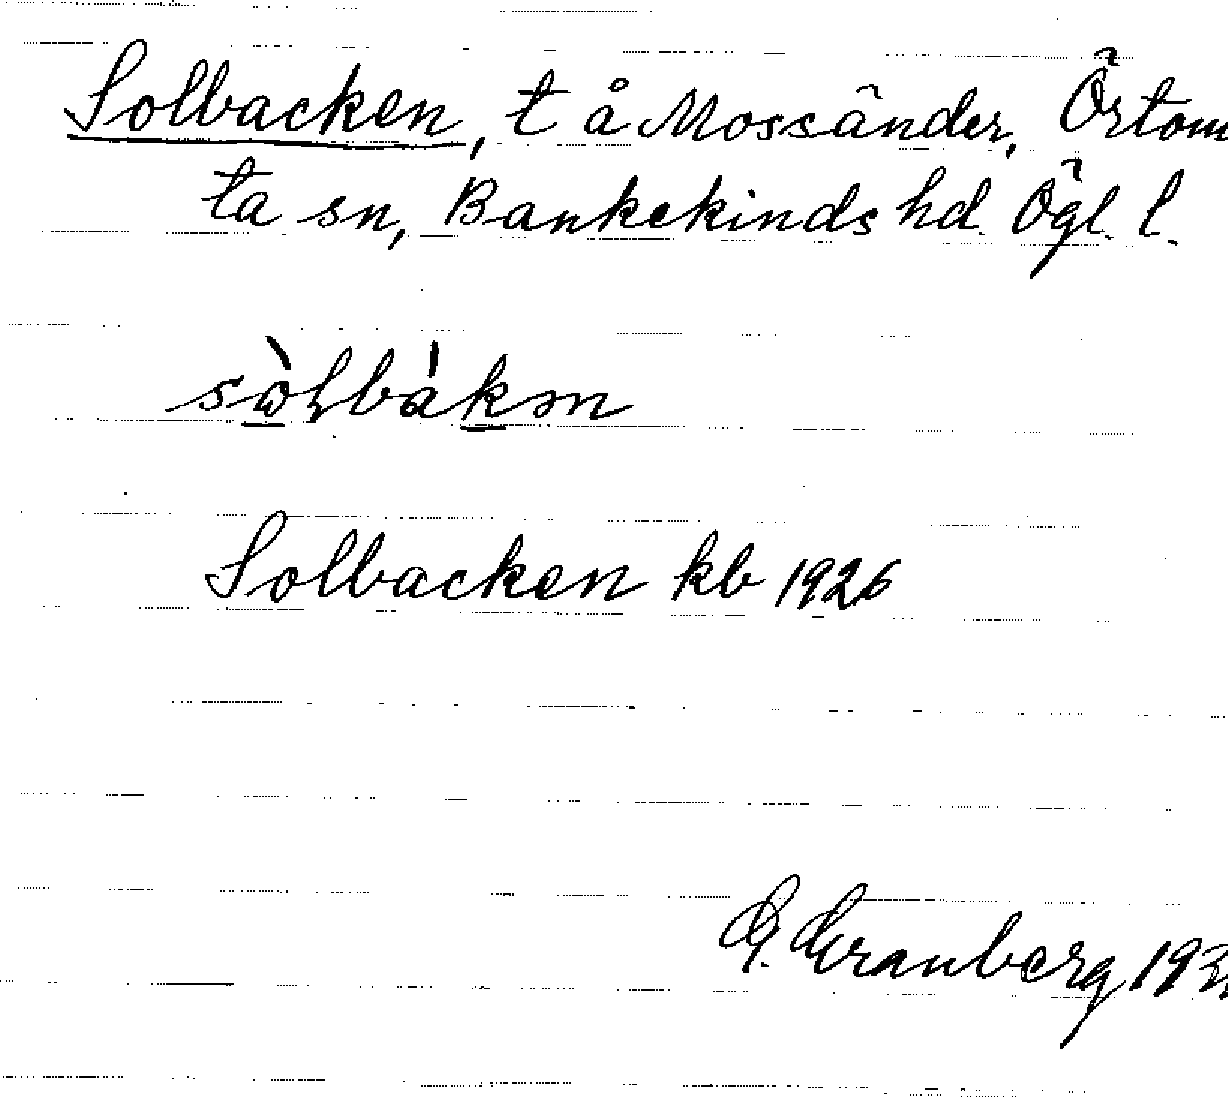 Solbacken, t å Mossänder, Örtom
ta sn, Bankekinds hd. Ögl. l.
Solbacken kb 1926
G. Granberg 193